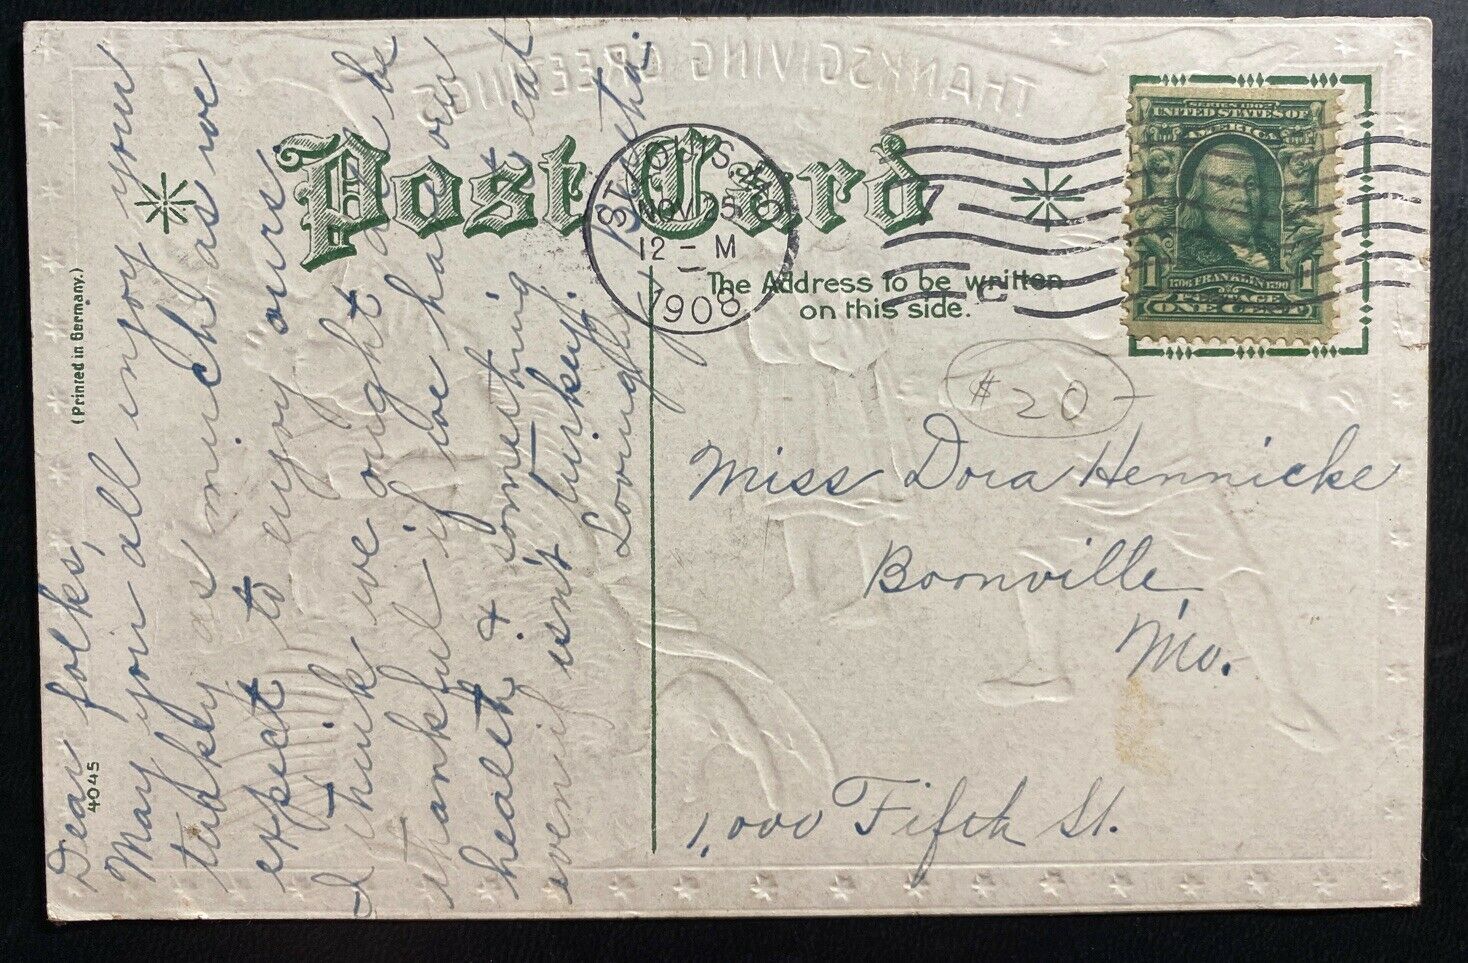 THANKSGIVING GREETINGS
Post Card
ST. LOUIS, M
NOV 25
12 - M
1908
SERIES 1902
UNITED STATES OF
AMERICA
1 1
1706 FRANKLIN 1790
POSTAGE
ONE CENT
The Address to be written
on this side.
$20-
Miss Dora Hennicke
Boonville,
Mo.
1,000 Fifth St.
(Printed in Germany.)
4045
Dear folks,
May you all enjoy your
turkey as much as we
expect to enjoy ours.
I think we ought all be
thankful if we have our
health & something to eat
even if isn't turkey.
Lovingly,